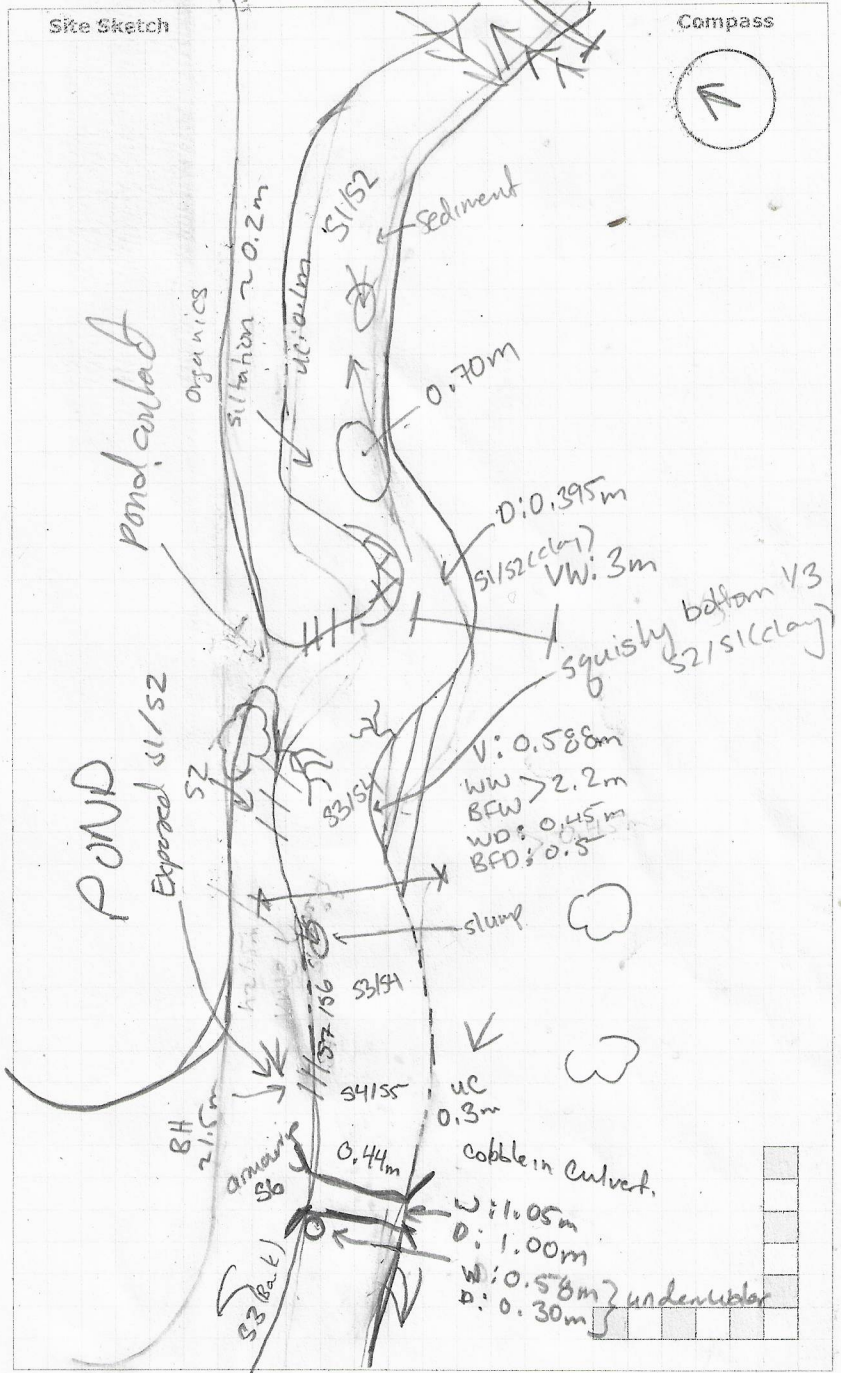 Site Sketch
Compass
S1/S2
Sediment
Organics
Siltation ~ 0.2m
UC: 0.1m
Pond contact
0.70m
D: 0.395m
S1/S2 (clay)
VW: 3m
squishy bottom 1/3
S2/S1 (clay)
POND
Exposed S1/S2
S2
S3/S4
V: 0.588m
WW > 2.2m
BFW
WD: 0.45m
BFD: 0.5
slump
S7/S6
S3/S4
S4/S5
UC
0.3m
BH
~1.5m
armoring
S6
0.44m
cobble in culvert.
W: 1.05m
D: 1.00m
W: 0.58m } underwater
D: 0.30m
S3 (Bank)